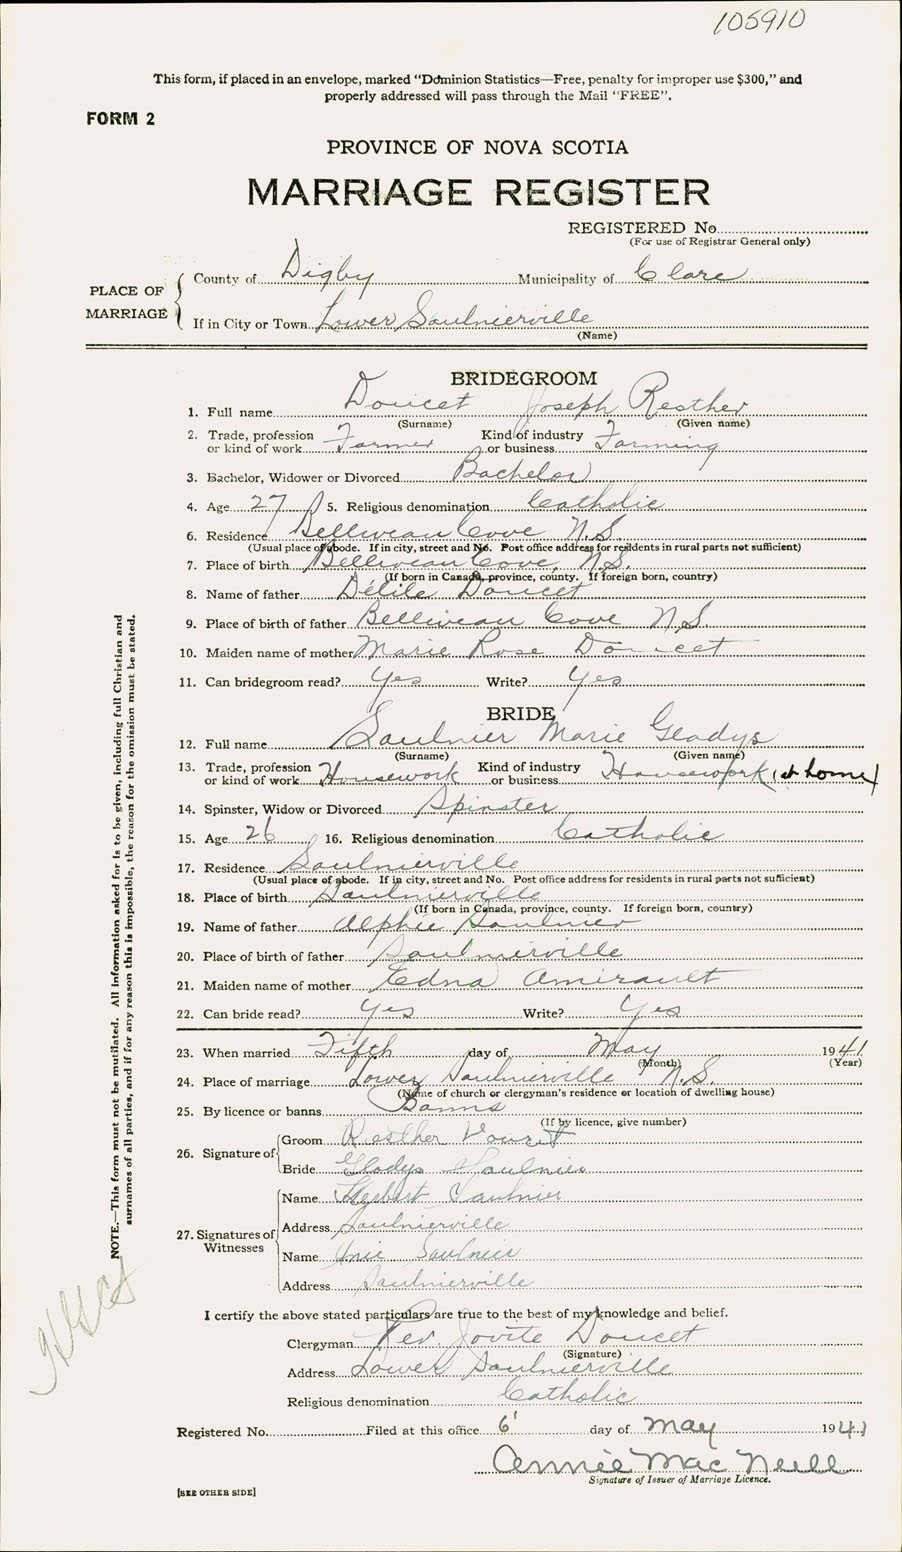 105910
This form, if placed in an envelope, marked "Dominion Statistics—Free, penalty for improper use $300," and
properly addressed will pass through the Mail "FREE".
FORM 2
PROVINCE OF NOVA SCOTIA
MARRIAGE REGISTER
REGISTERED No.
(For use of Registrar General only)
PLACE OF MARRIAGE
County of Digby Municipality of Clare
If in City or Town Lower Saulnierville
(Name)
BRIDEGROOM
1. Full name Doucet Joseph Resther
(Surname) (Given name)
2. Trade, profession or kind of work Farmer Kind of industry or business Farming
3. Bachelor, Widower or Divorced Bachelor
4. Age 27 5. Religious denomination Catholic
6. Residence Belliveau Cove N.S.
(Usual place of abode. If in city, street and No. Post office address for residents in rural parts not sufficient)
7. Place of birth Belliveau Cove, N.S.
(If born in Canada, province, county. If foreign born, country)
8. Name of father Délile Doucet
9. Place of birth of father Belliveau Cove N.S.
10. Maiden name of mother Marie Rose Doucet
11. Can bridegroom read? Yes Write? Yes
BRIDE
12. Full name Saulnier Marie Gladys
(Surname) (Given name)
13. Trade, profession or kind of work Housework Kind of industry or business Housework (at home)
14. Spinster, Widow or Divorced Spinster
15. Age 26 16. Religious denomination Catholic
17. Residence Saulnierville
(Usual place of abode. If in city, street and No. Post office address for residents in rural parts not sufficient)
18. Place of birth Saulnierville
(If born in Canada, province, county. If foreign born, country)
19. Name of father Alphie Saulnier
20. Place of birth of father Saulnierville
21. Maiden name of mother Edna Amirault
22. Can bride read? Yes Write? Yes
23. When married Fifth day of May 1941
(Month) (Year)
24. Place of marriage Lower Saulnierville N.S.
(Name of church or clergyman's residence or location of dwelling house)
25. By licence or banns Banns
(If by licence, give number)
26. Signature of
Groom Resther Doucet
Bride Gladys Saulnier
27. Signatures of Witnesses
Name Herbert Saulnier
Address Saulnierville
Name Saulnier
Address Saulnierville
I certify the above stated particulars are true to the best of my knowledge and belief.
Clergyman Rev. Jovite Doucet
(Signature)
Address Lower Saulnierville
Religious denomination Catholic
Registered No. Filed at this office 6 day of May 1941
Annie Mac Neill
Signature of Issuer of Marriage Licence.
[SEE OTHER SIDE]
NOTE.—This form must not be mutilated. All information asked for is to be given, including full Christian and
surnames of all parties, and if for any reason this is impossible, the reason for the omission must be stated.